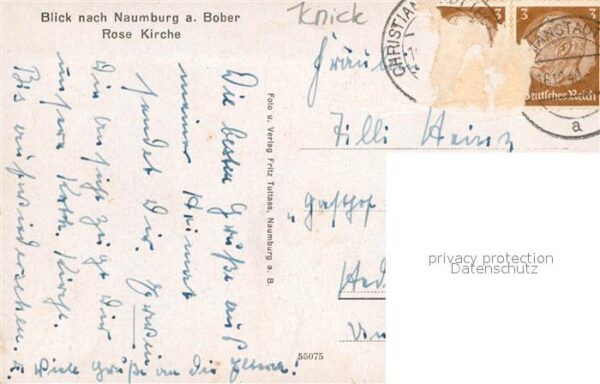 Blick nach Naumburg a. Bober
Rose Kirche
Knick
CHRISTIANSTADT (
3
3
Deutsches Reich
a
Fräulein
Tilli Heinz
"Gasthof
Die besten Grüße aus
meiner Heimat
sendet Dir. Erwin
Die ansicht zeigt Dir
unsere Kath. Kirche.
Bis auf wiedersehen.
Viele Grüße an die Eltern!
Foto u. Verlag Fritz Tuttass, Naumburg a. B.
55075
privacy protection
Datenschutz